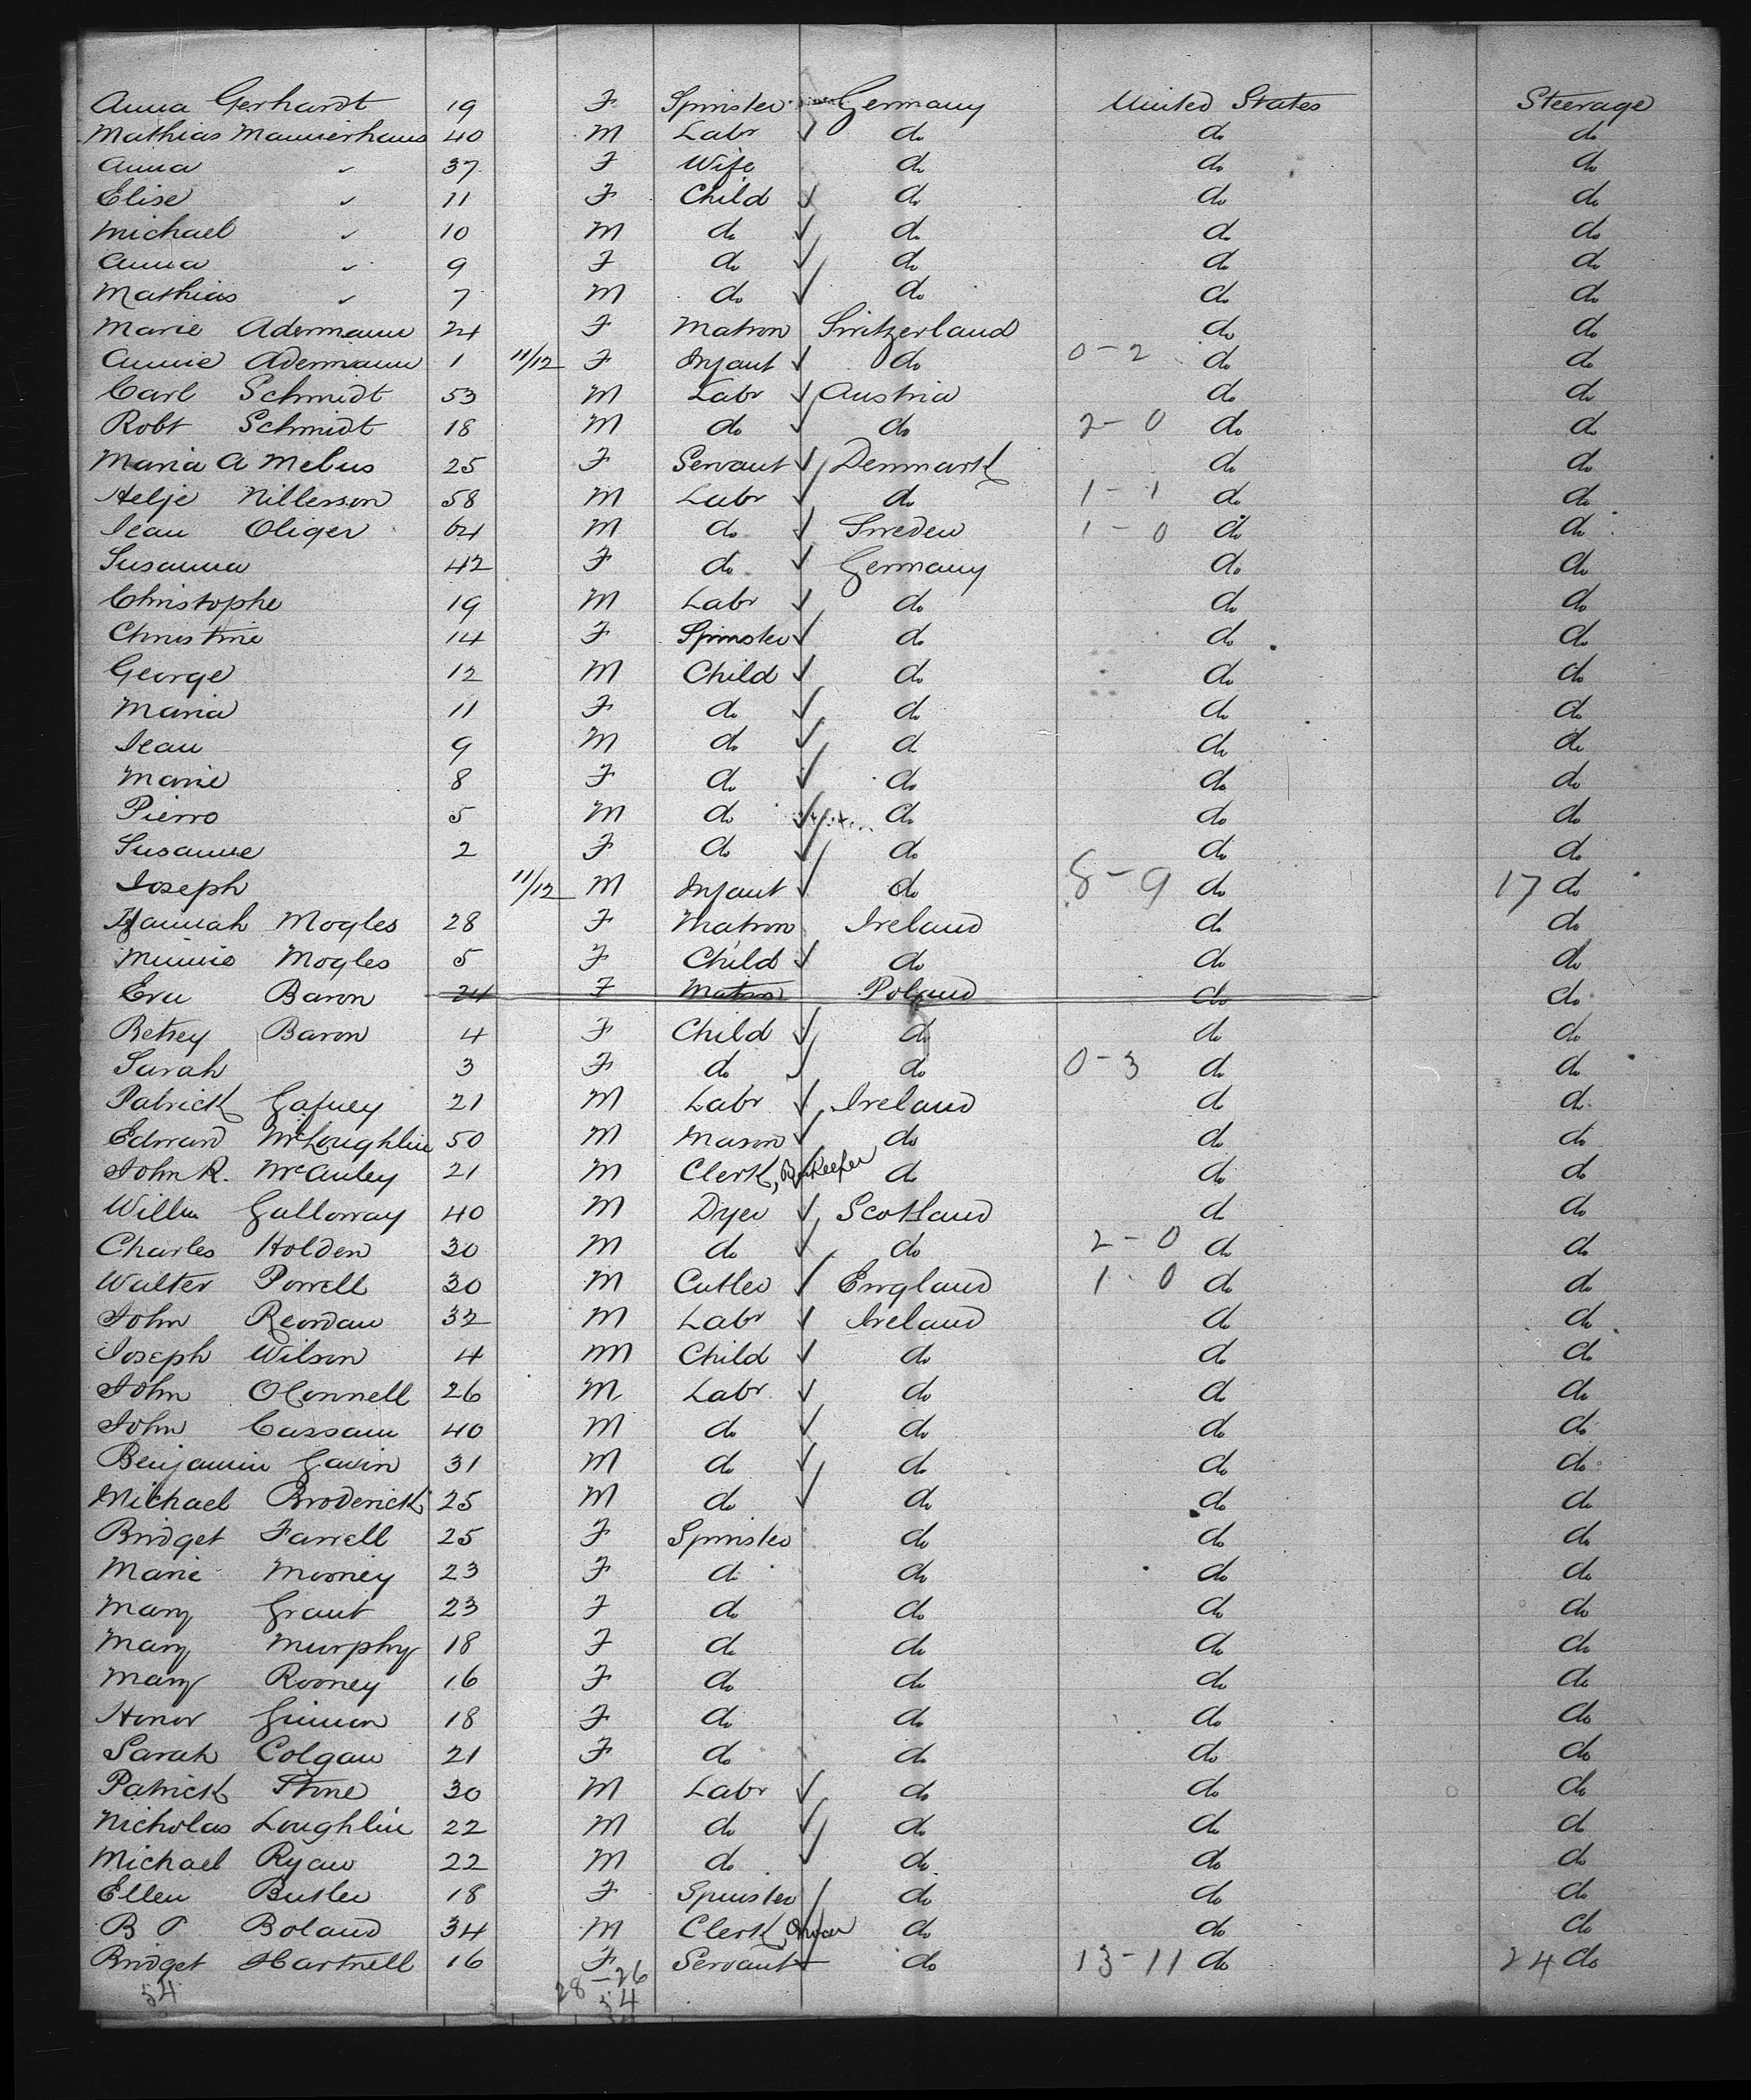 Anna Gerhardt 19 F Spinster Germany United States Steerage
Mathias Mannerhans 40 M Labr ✓ do do do
Anna " 37 F Wife do do do
Elise " 11 F Child ✓ do do do
Michael " 10 M do ✓ do do do
Anna " 9 F do ✓ do do do
Mathias " 7 M do ✓ do do do
Marie Adermann 24 F Matron Switzerland do do
Annie Adermann 1 11/12 F Infant ✓ do 0-2 do do
Carl Schmidt 53 M Labr ✓ Austria do do
Robt Schmidt 18 M do ✓ do 2-0 do do
Maria A Mebus 25 F Servant ✓ Denmark do do
Helje Nillerson 58 M Labr ✓ do 1-1 do do
Jean Oliger 64 M do ✓ Sweden 1-0 do do
Susanna 42 F do ✓ Germany do do
Christophe 19 M Labr ✓ do do do
Christine 14 F Spinster ✓ do do do
George 12 M Child ✓ do do do
Maria 11 F do ✓ do do do
Jean 9 M do ✓ do do do
Marie 8 F do ✓ do do do
Pierro 5 M do ✓ do do do
Susanne 2 F do ✓ do do do
Joseph 11/12 M Infant ✓ do 8-9 do 17 do
Hannah Mogles 28 F Matron Ireland do do
Minnie Mogles 5 F Child ✓ do do do
Eva Baron 24 F Matron Poland do do
Betsey Baron 4 F Child ✓ do do do
Sarah 3 F do ✓ do 0-3 do do
Patrick Gafney 21 M Labr ✓ Ireland do do
Edward McLoughlin 50 M Mason ✓ do do do
John R. McAuley 21 M Clerk, Bookkeeper do do do
Willm Galloway 40 M Dyer ✓ Scotland do do
Charles Holden 30 M do ✓ do 2-0 do do
Walter Powell 30 M Cutler ✓ England 1-0 do do
John Reordan 32 M Labr ✓ Ireland do do
Joseph Wilson 4 M Child ✓ do do do
John OConnell 26 M Labr ✓ do do do
John Cassam 40 M do ✓ do do do
Benjamin Gavin 31 M do ✓ do do do
Michael Broderick 25 M do ✓ do do do
Bridget Farrell 25 F Spinster do do do
Marie Mooney 23 F do do do do
Mary Grant 23 F do do do do
Mary Murphy 18 F do do do do
Mary Rooney 16 F do do do do
Honor 18 F do do do do
Sarah Colgan 21 F do do do do
Patrick Stone 30 M Labr ✓ do do do
Nicholas Loughlin 22 M do ✓ do do do
Michael Ryan 22 M do ✓ do do do
Ellen Butler 18 F Spinster do do do
B P Boland 34 M Clerk do do do
Bridget Hartnell 16 F Servant do 13-11 do 24 do
54 28-26
54